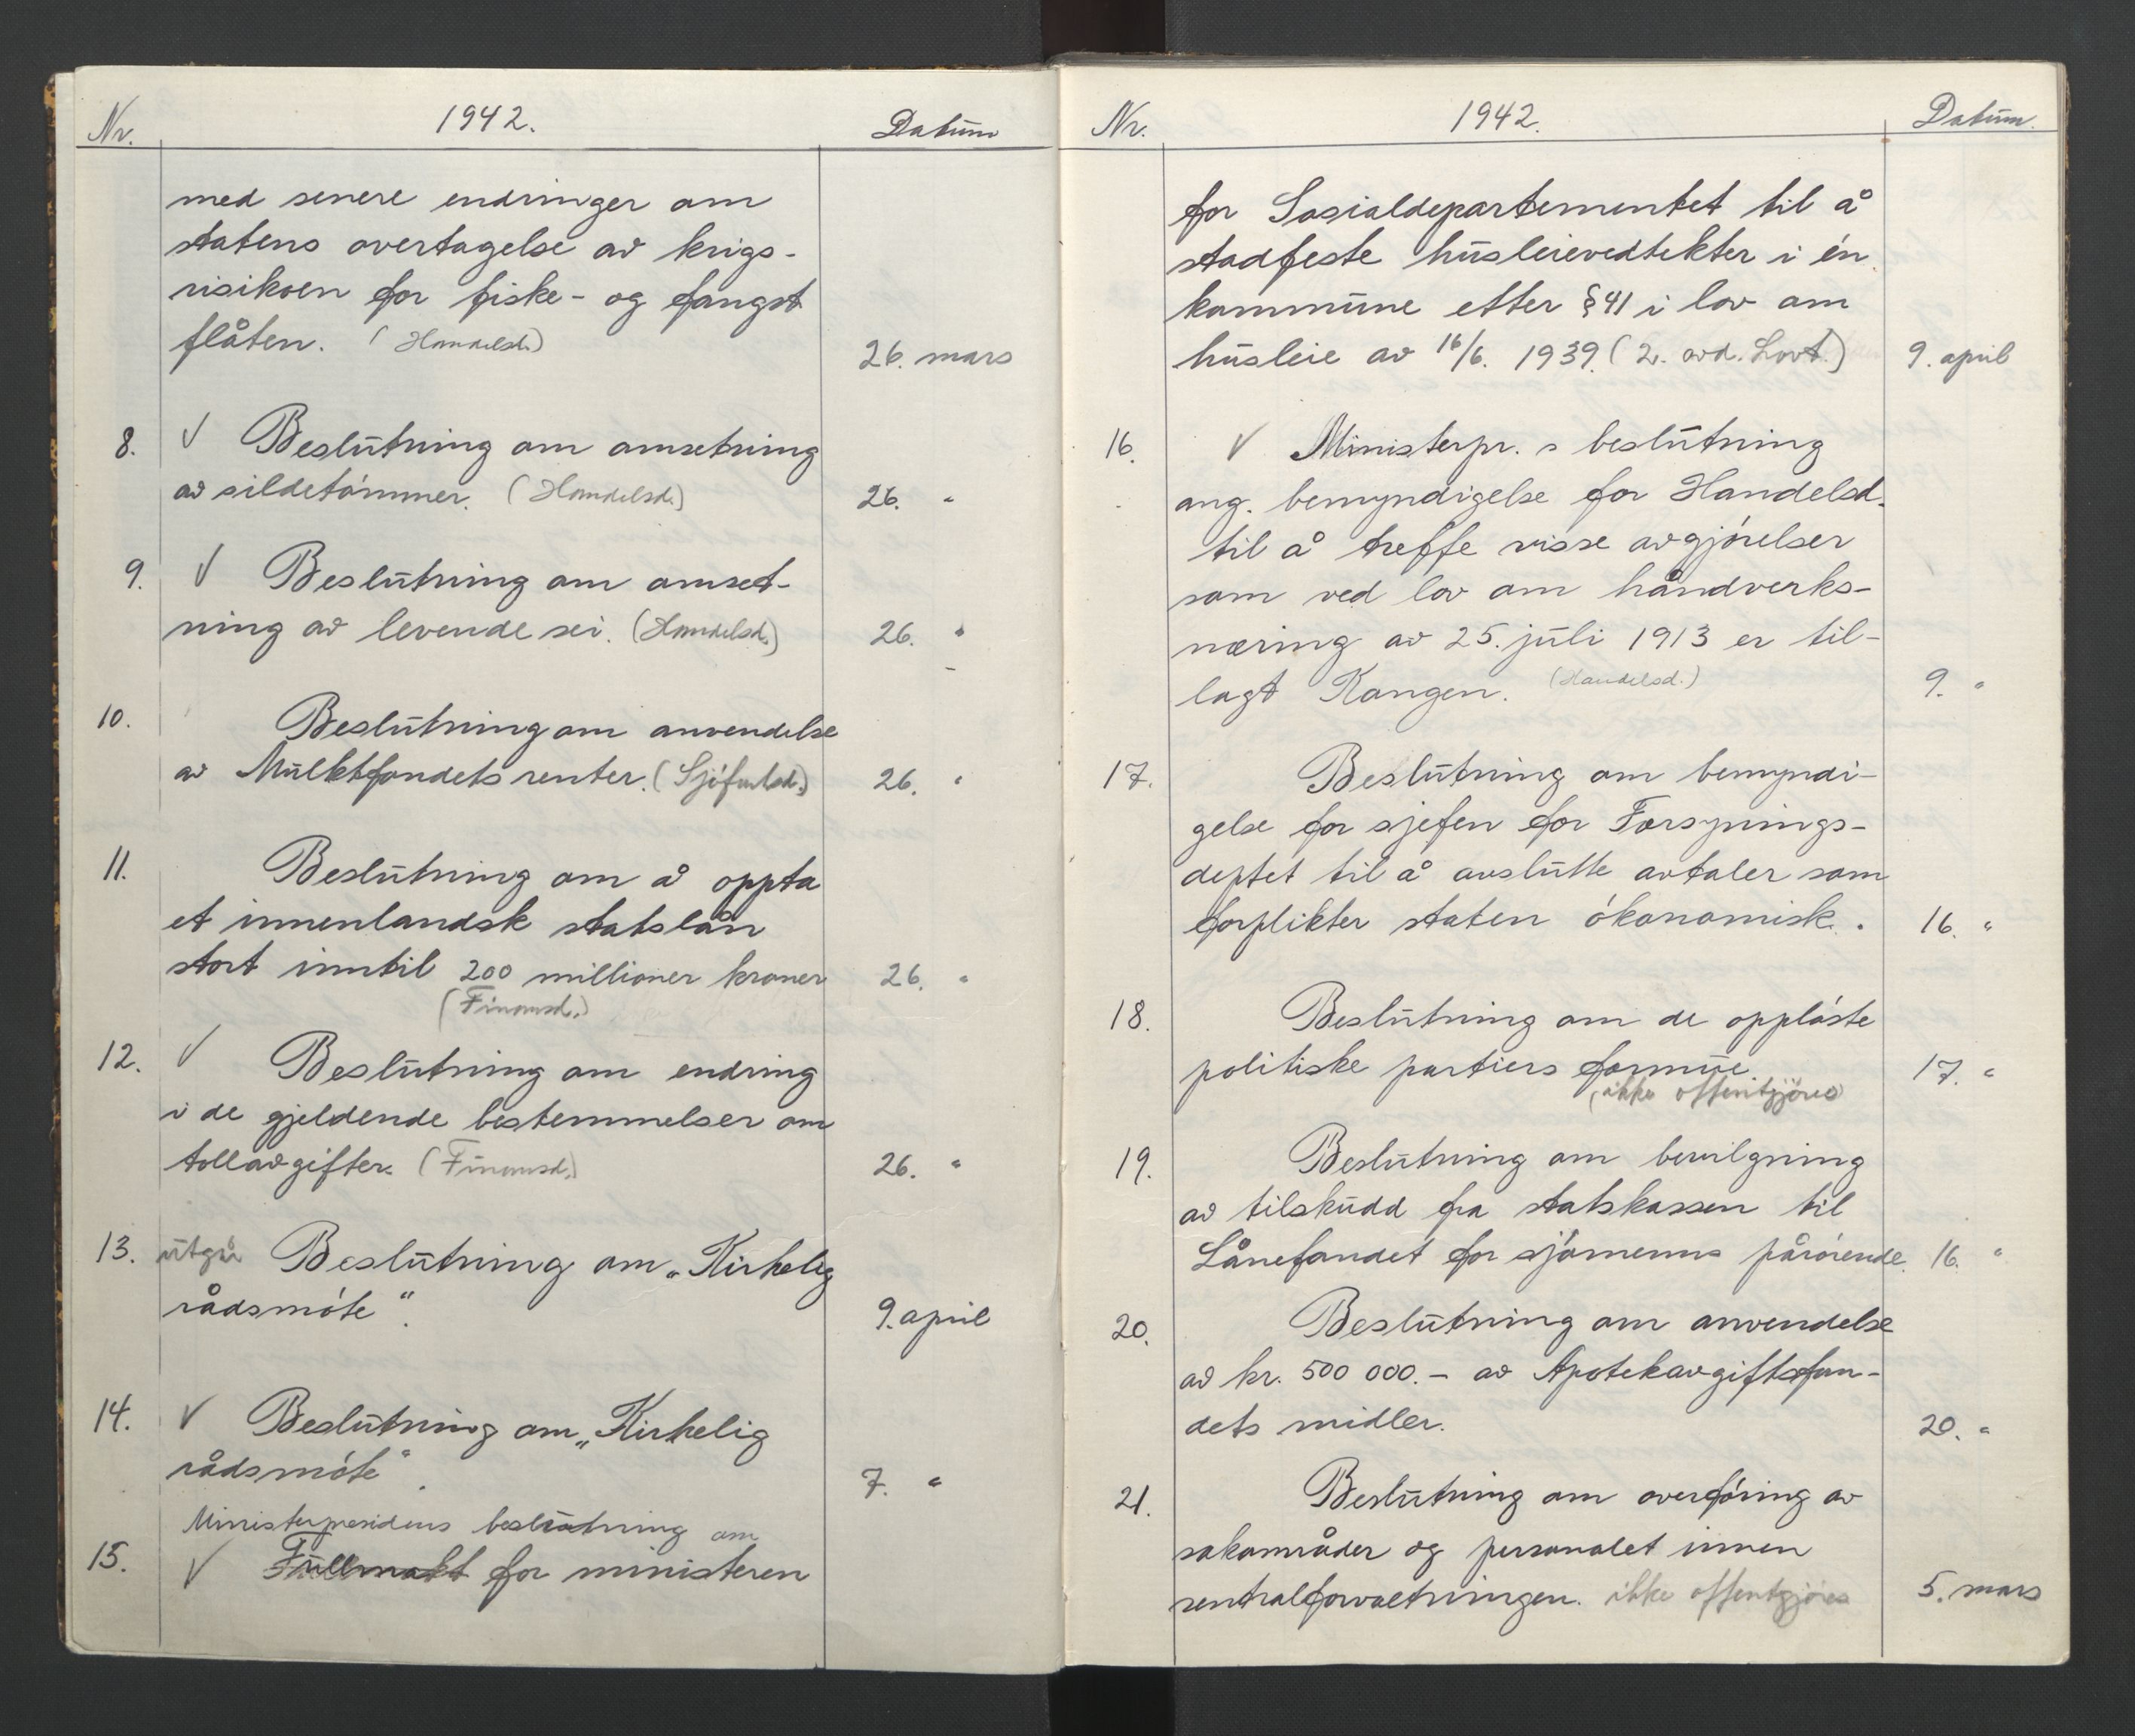 Nr. 1942. Datum
med senere endringer om
statens overtagelse av krigs-
risikoen for fiske- og fangst
flåten. (Handelsd.) 26. mars
8. √ Beslutning om omsetning
av sildetömmer. (Handelsd.) 26. "
9. √ Beslutning om omset-
ning av levende sei. (Handelsd.) 26. "
10. Beslutning om anvendelse
av Mulktfondets renter. (Sjöfartsd.) 26. "
11. Beslutning om å oppta
et innenlandsk statslån
stort inntil 200 millioner kroner 26. "
(Finansd.)
12. √ Beslutning om endring
i de gjeldende bestemmelser om
tollavgifter. (Finansd.) 26. "
13. utgår Beslutning om „Kirkelig
rådsmöte“. 9. april
14. √ Beslutning om „Kirkelig
rådsmöte“. 7. "
Ministerpresidens beslutning om
15. √ Fullmakt for ministeren
Nr. 1942. Datum.
for Sosialdepartementet til å
stadfeste husleievedtekter i én
kommune etter § 41 i lov om
husleie av 16/6. 1939. (2. avd. Lovt.) 9. april
16. √ Ministerpr. s beslutning
ang. bemyndigelse for Handelsd.
til å treffe visse avgjörelser
som ved lov om håndverks-
næring av 25. juli 1913 er til-
lagt Kongen. (Handelsd.) 9. "
17. Beslutning om bemyndi-
gelse for sjefen for Forsynings-
deptet til å avslutte avtaler som
forplikter staten ökonomisk. 16. "
18. Beslutning om de opplöste
politiske partiers formue 17. "
(ikke offentgjöres
19. Beslutning om bevilgning
av tilskudd fra statskassen til
Lånefondet for sjömenns pårörende. 16. "
20. Beslutning om anvendelse
av kr. 500 000.- av Apotekavgiftsfon-
dets midler. 20. "
21. Beslutning om overföring av
sakområder og personalet innen
sentralforvaltningen. ikke offentgjöres 5. mars